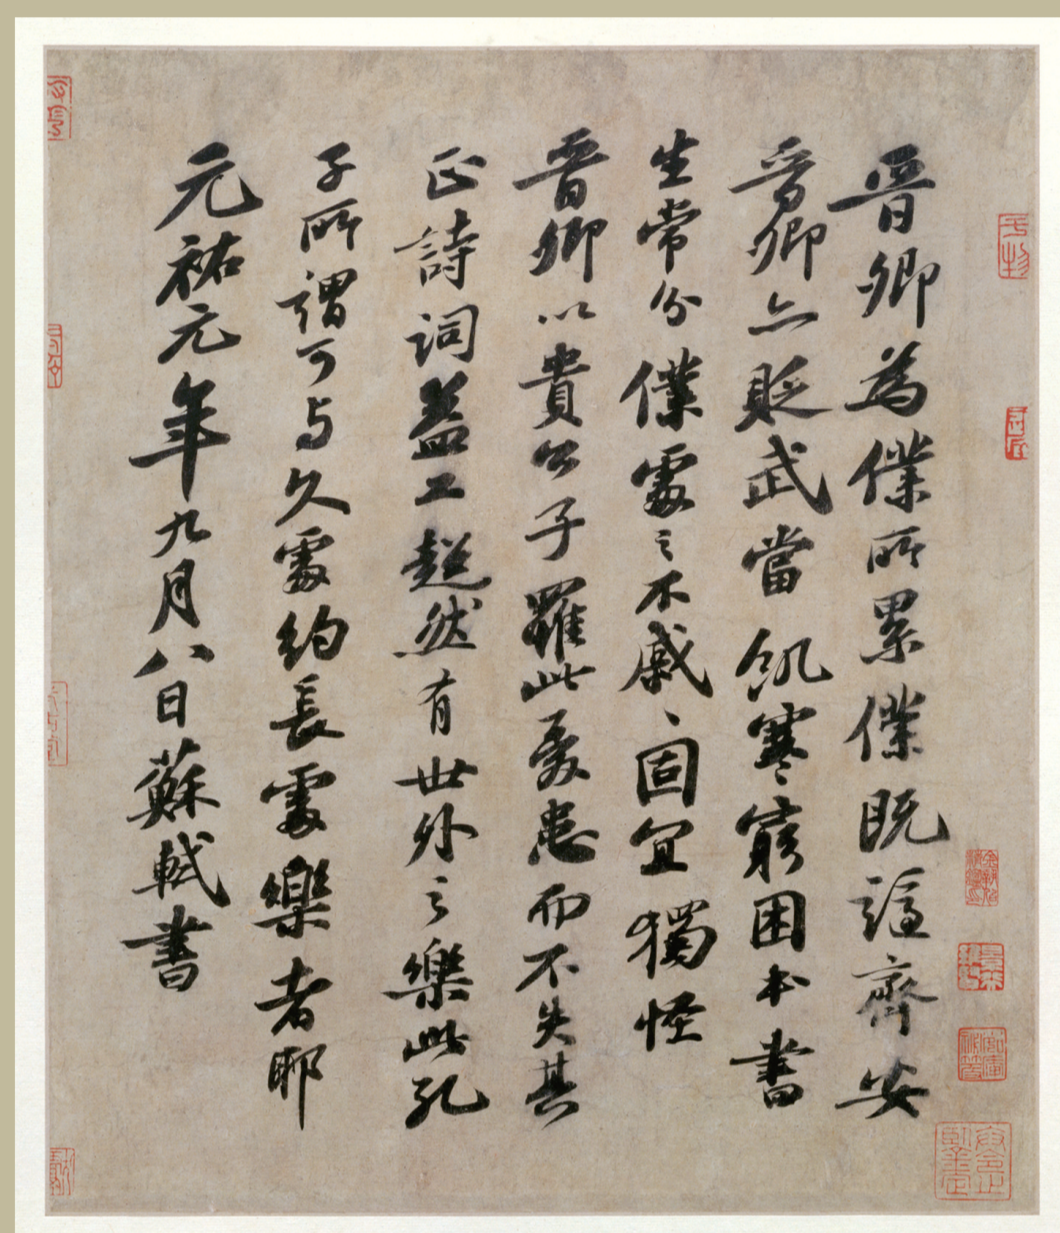 晉卿為僕所累僕既謫齊安
晉卿亦貶武當飢寒窮困本書
生常分僕處之不戚、固宜獨怪
晉卿以貴公子罹此憂患而不失其
正詩詞益工超然有世外之樂此孔
子所謂可与久處約長處樂者耶
元祐元年九月八日蘇軾書